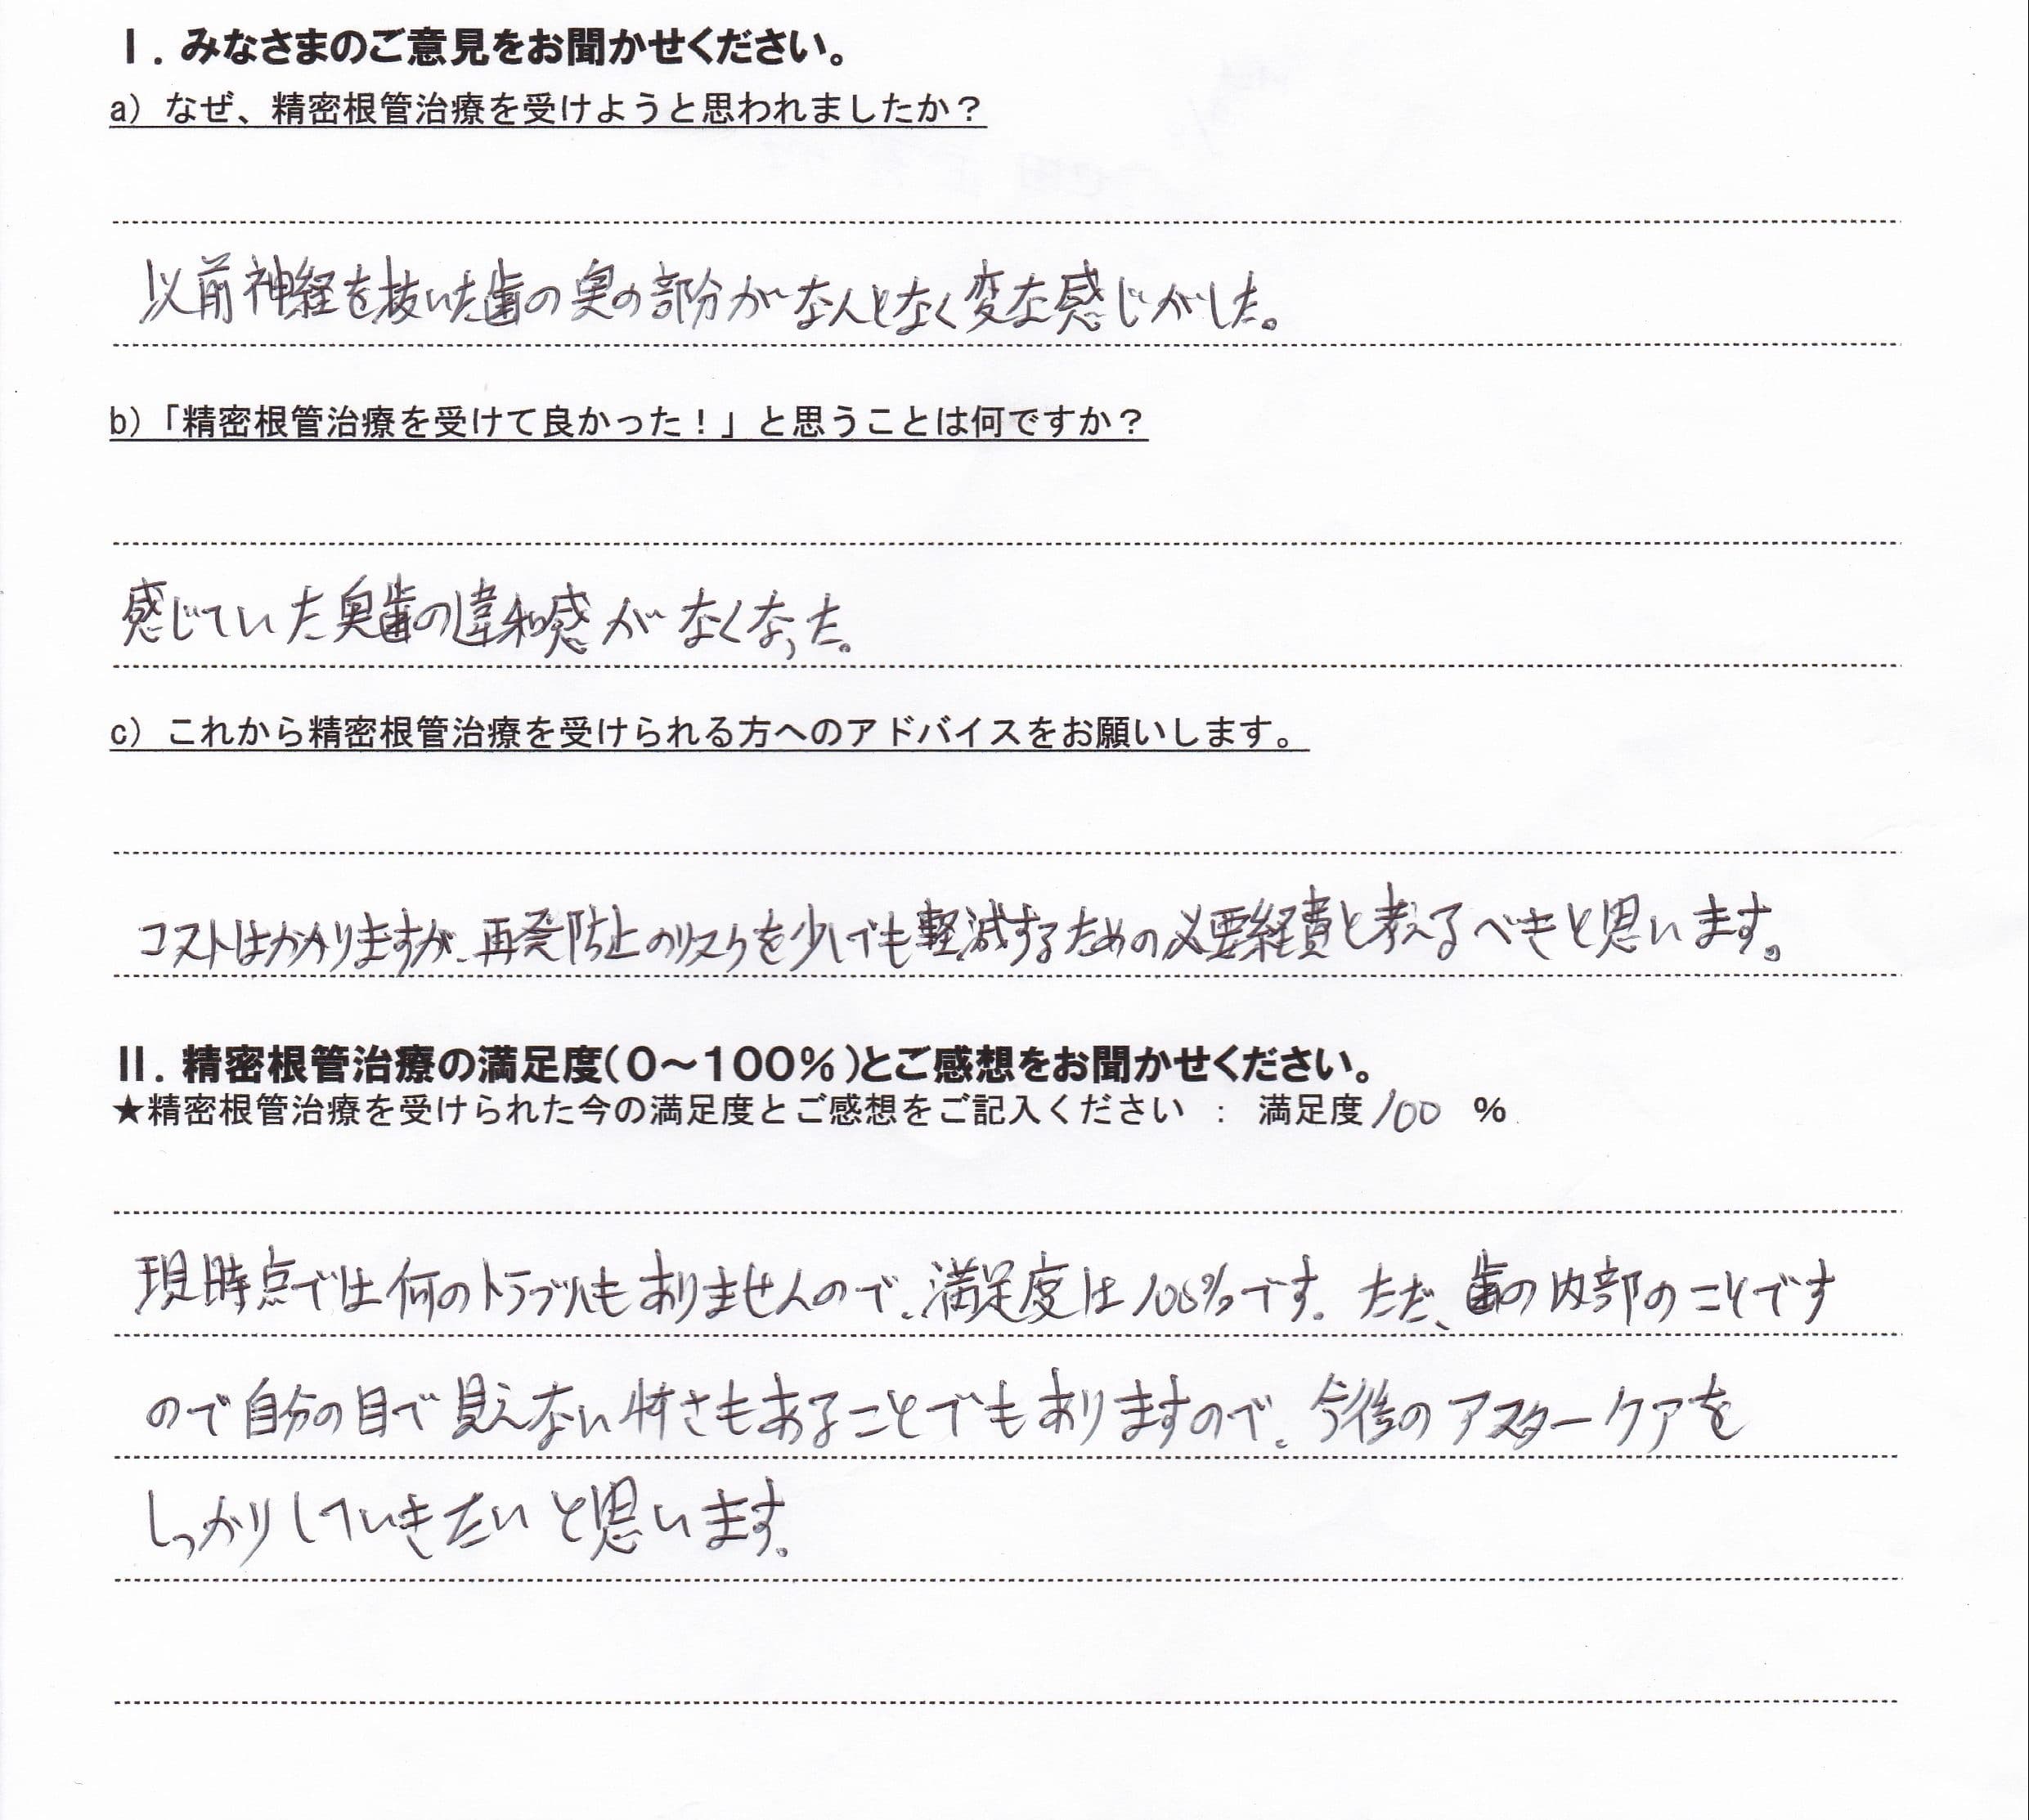 Ⅰ．みなさまのご意見をお聞かせください。
a）なぜ、精密根管治療を受けようと思われましたか？
以前神経を抜いた歯の奥の部分がなんとなく変な感じがした。
b）「精密根管治療を受けて良かった！」と思うことは何ですか？
感じていた奥歯の違和感がなくなった。
c）これから精密根管治療を受けられる方へのアドバイスをお願いします。
コストはかかりますが、再発防止のリスクを少しでも軽減するための必要経費と考えるべきと思います。
Ⅱ．精密根管治療の満足度（０～１００％）とご感想をお聞かせください。
★精密根管治療を受けられた今の満足度とご感想をご記入ください ： 満足度 100 ％
現時点では何のトラブルもありませんので、満足度は100％です。ただ、歯の内部のことです
ので自分の目で見えない怖さもあることでもありますので、今後のアフターケアを
しっかりしていきたいと思います。